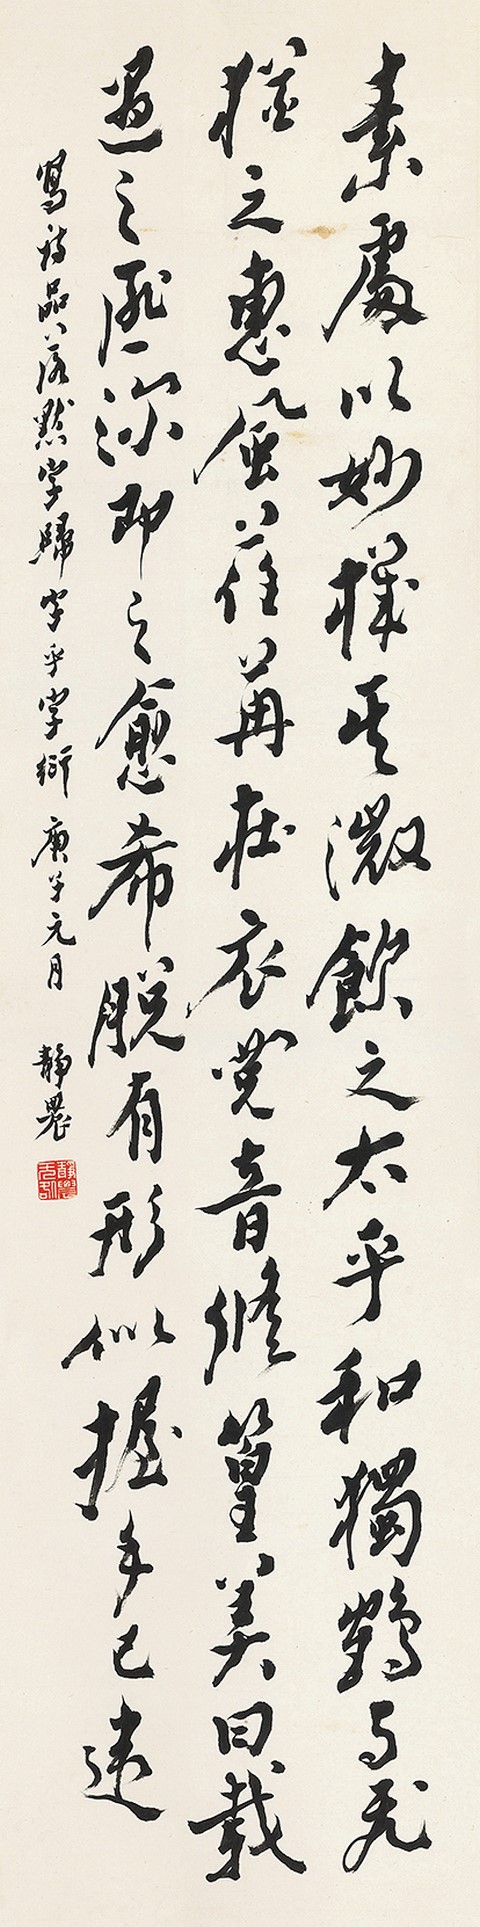 素處以妙機其微飲之太乎和獨鶴与飛
猶之惠風荏苒在衣覺音修篁美曰載
遇之匪深即之愈希脫有形似握手已違
寫詩品落默字歸字乎字衍 庚午元月 靜農